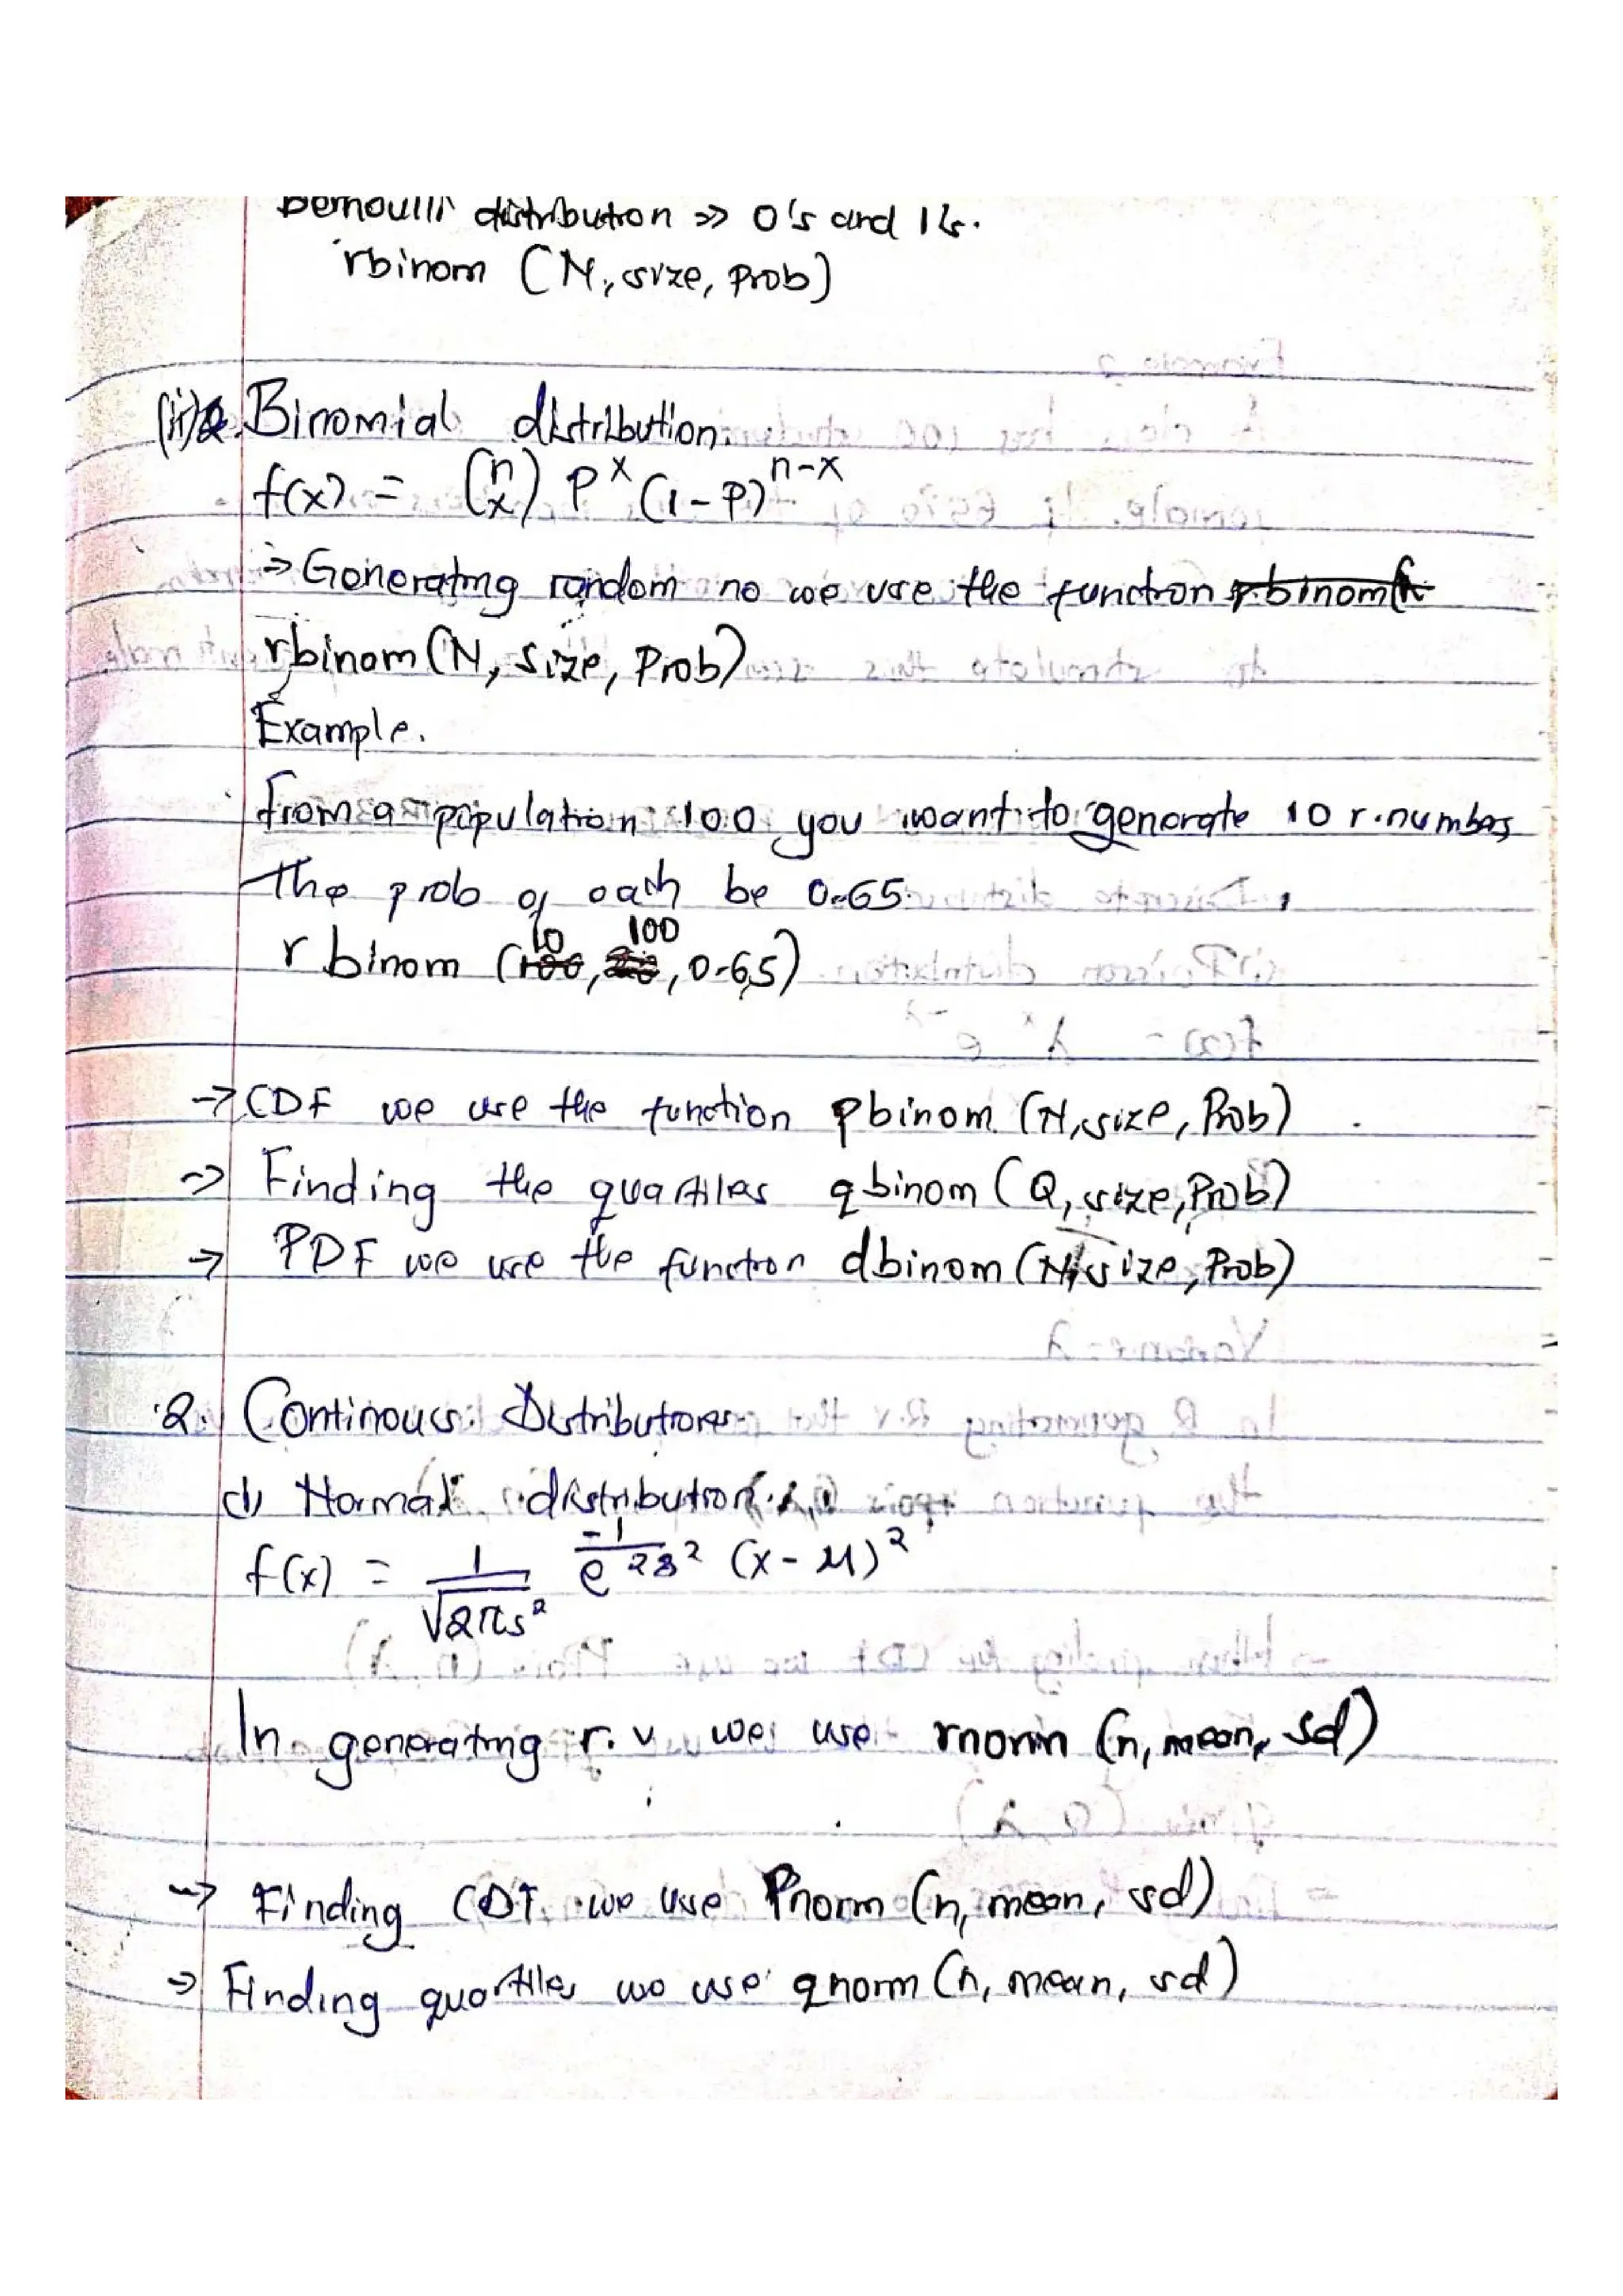 Bernoulli distribution => 0's and 1's.
rbinom (N, size, Prob)
(ii) Binomial distribution.
f(x) = (n x) P^x (1-P)^n-x
=> Generating random no we use the function rbinom(
rbinom (N, size, Prob)
Example.
from a population 100 you want to generate 10 r.numbers
The prob of each be 0.65
rbinom (10, 100, 0.65)
-> CDF we use the function pbinom (N, size, Prob)
-> Finding the quartiles qbinom (Q, size, Prob)
-> PDF we use the function dbinom (N, size, Prob)
2. Continous Distributions
(i) Normal distribution
f(x) = 1/√2πs² e^-1/2s² (x-μ)²
In generating r.v we use rnorm (n, mean, sd)
-> Finding CDF we use Pnorm (n, mean, sd)
=> Finding quartiles we use qnorm (n, mean, sd)